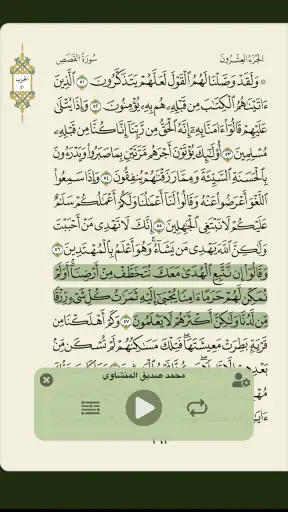 الجزء العشرون
سورة القصص
الحزب
٤٠
۞ وَلَقَدْ وَصَّلْنَا لَهُمُ ٱلْقَوْلَ لَعَلَّهُمْ يَتَذَكَّرُونَ ٥١ ٱلَّذِينَ
ءَاتَيْنَٰهُمُ ٱلْكِتَٰبَ مِن قَبْلِهِۦ هُم بِهِۦ يُؤْمِنُونَ ٥٢ وَإِذَا يُتْلَىٰ
عَلَيْهِمْ قَالُوٓا۟ ءَامَنَّا بِهِۦٓ إِنَّهُ ٱلْحَقُّ مِن رَّبِّنَآ إِنَّا كُنَّا مِن قَبْلِهِۦ
مُسْلِمِينَ ٥٣ أُو۟لَٰٓئِكَ يُؤْتَوْنَ أَجْرَهُم مَّرَّتَيْنِ بِمَا صَبَرُوا۟ وَيَدْرَءُونَ
بِٱلْحَسَنَةِ ٱلسَّيِّئَةَ وَمِمَّا رَزَقْنَٰهُمْ يُنفِقُونَ ٥٤ وَإِذَا سَمِعُوا۟
ٱللَّغْوَ أَعْرَضُوا۟ عَنْهُ وَقَالُوا۟ لَنَآ أَعْمَٰلُنَا وَلَكُمْ أَعْمَٰلُكُمْ سَلَٰمٌ
عَلَيْكُمْ لَا نَبْتَغِى ٱلْجَٰهِلِينَ ٥٥ إِنَّكَ لَا تَهْدِى مَنْ أَحْبَبْتَ
وَلَٰكِنَّ ٱللَّهَ يَهْدِى مَن يَشَآءُ وَهُوَ أَعْلَمُ بِٱلْمُهْتَدِينَ ٥٦
وَقَالُوٓا۟ إِن نَّتَّبِعِ ٱلْهُدَىٰ مَعَكَ نُتَخَطَّفْ مِنْ أَرْضِنَآ أَوَلَمْ
نُمَكِّن لَّهُمْ حَرَمًا ءَامِنًا يُجْبَىٰٓ إِلَيْهِ ثَمَرَٰتُ كُلِّ شَىْءٍ رِّزْقًا
مِّن لَّدُنَّا وَلَٰكِنَّ أَكْثَرَهُمْ لَا يَعْلَمُونَ ٥٧ وَكَمْ أَهْلَكْنَا مِن
قَرْيَةٍۭ بَطِرَتْ مَعِيشَتَهَا فَتِلْكَ مَسَٰكِنُهُمْ لَمْ تُسْكَن مِّنۢ
محمد صديق المنشاوي